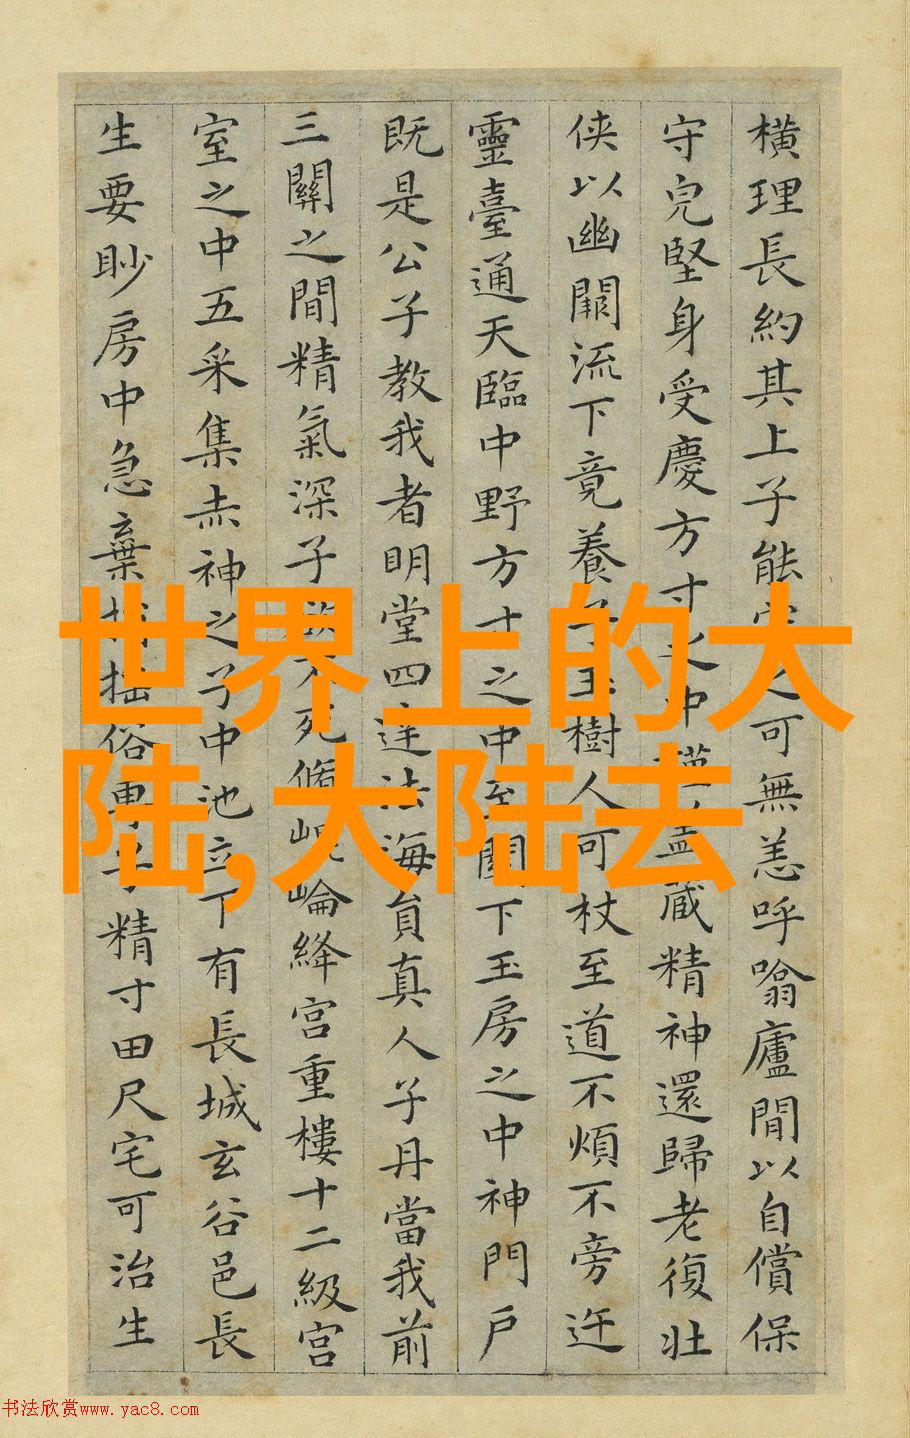 橫理長約其上子能之可無恙呼噏廬間以自償保
守皃堅身受慶方寸之中藏精神還歸老復壯
侠以幽闕流下竟養子玉樹人可杖至道不煩不旁迕
靈臺通天臨中野方寸之中至關下玉房之中神門戶
既是公子教我者明堂四達法海員真人子丹當我前
三關之間精氣深子不死脩崐崘絳宮重樓十二級宮
室之中五采集赤神之子中池立下有長城玄谷邑長
生要眇房中急棄捐俗專子精寸田尺宅可治生
世界上的大
陆,大陆去
书法欣赏www.yac8.com